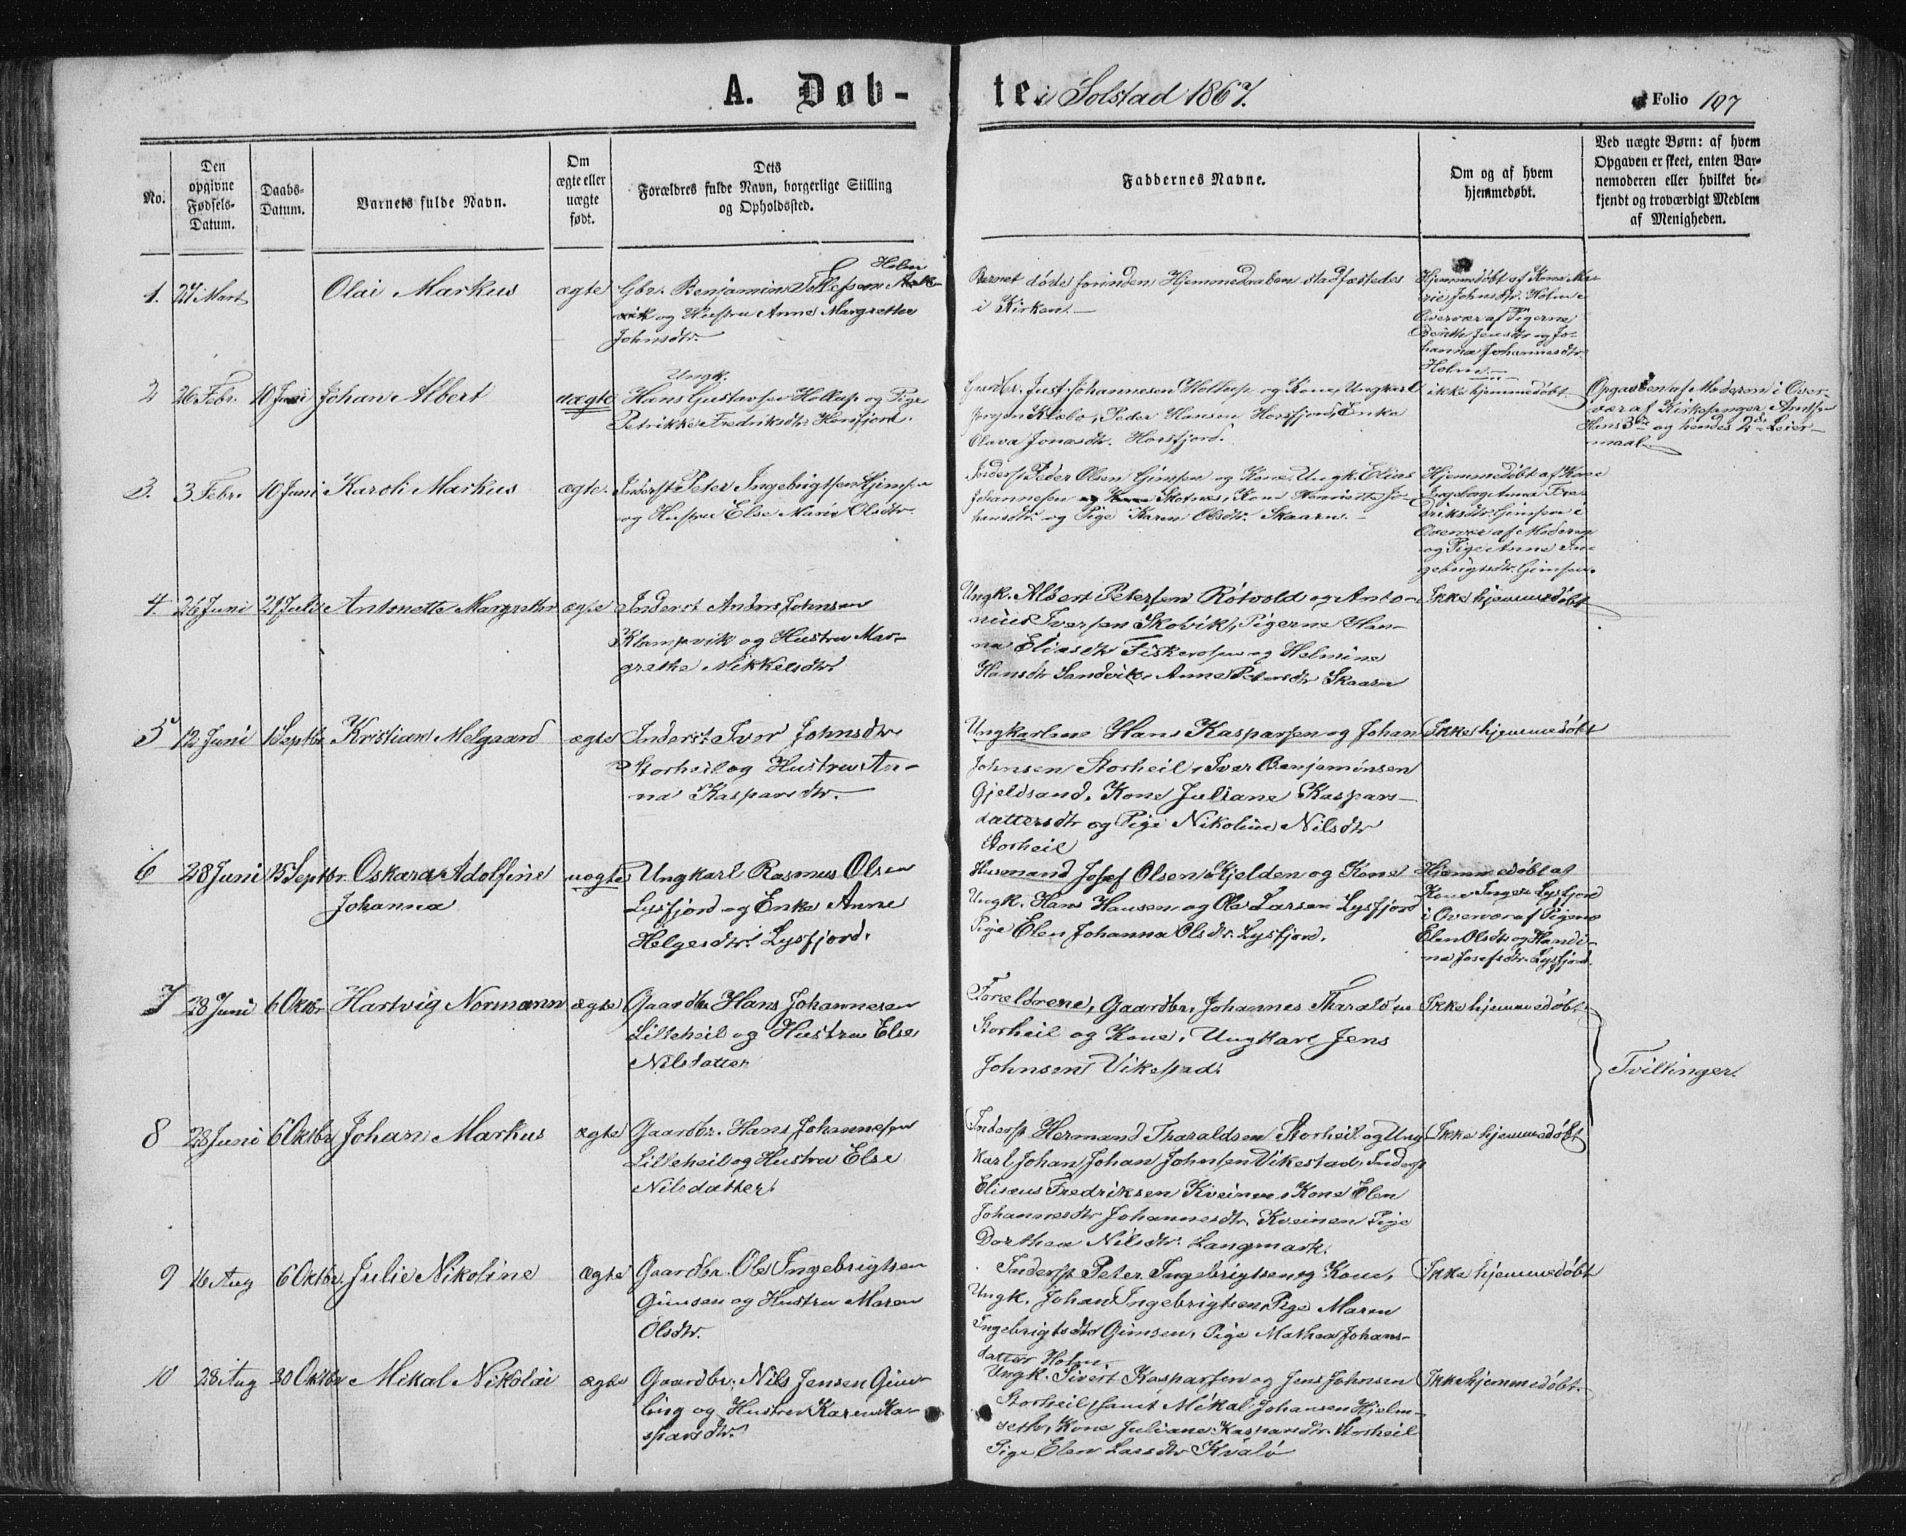 A. Døb-
te i Solstad 1867.
Folio 107
No.
Den
opgivne
Fødsels-
Datum.
Daabs-
Datum.
Barnets fulde Navn.
Om
ægte eller
uægte
født.
Dets
Forældres fulde Navn, borgerlige Stilling
og Opholdssted.
Faddernes Navne.
Om og af hvem
hjemmedøbt.
Ved uægte Børn: af hvem
Opgaven er skeet, enten Bar-
nemoderen eller hvilket be-
kjendt og troværdigt Medlem
af Menigheden.
1. 24 Mart
Olai Markus
ægte
Holm
Gbr. Benjamin
og Hustru Anne Margrethe
Johnsdtr.
Barnet døde forinden Hjemmedaaben stadfæstedes
i Kirken.
Hjemmedøbt af Kone Ma-
rie Johnsdtr. Holm i
Overvær af Pigerne
Jensdtr og Jo-
hanna Johannesdtr
Holm.
2 26 Febr. 10 Juni Johan Albert
uægte
Ungk.
Hans Gustavsen Hollup og Pige
Petrikke Fredriksdtr. Horsfjord.
Gaardbr. Just Johannesen Hollup og Kone, Ungkarl
Jørgen Klæbo, Peder Hansen Horsfjord, Enke
Oliva Jonasdtr. Horsfjord.
ikke hjemmedøbt
Opgaven af Moderen i Over-
vær af Kirkesanger
Hans 3die og hendes 2d Leier-
maal
3. 3 Febr. 10 Juni Karoli Markus
ægte.
Inderst Peter Ingebrigtsen Gimsen
og Hustru Else Marie Olsdtr.
Inderst Peder Olsen Gimsen og Kone, Ungk. Elias
Johannesen Skotnes, Kone Henriette Jo-
hansdtr. og Pige Karen Olsdtr. Skaaren.
Hjemmedøbt af Kone
Ingeborg Anna Fre-
driksdtr. Gimsen i
Overvær af Moderen
og Pige Anne In-
gebrigtsdtr. Gimsen.
4. 26 Juni 21 Juli Antonette Margrethe
ægte
Inderst Anders Johnsen
Klampvik og Hustru Mar-
grethe Mikkelsdtr
Ungk. Albert Petersen Røtvold og Anto-
nius Iversen Skolvik, Pigerne Han-
na Eliasdtr Fiskerosen og Helmine
Hansdtr Sandvik, Anne Petersdtr Skaaren
Ikke hjemmedøbt
5 12 Juni 1 Septbr Kristian Melgaard
ægte
Inderst Iver Johnsdtr
Storheil og Hustru An-
na Kasparsdtr.
Ungkarlene Hans Kasparsen og Johan
Johnsen Storheil, Iver Benjaminsen
Gjeldsand, Kone Juliane Kaspars-
dattersdtr og Pige Nikoline Nilsdtr
Storheil
Ikke hjemmedøbt
6 28 Juni 15 Septbr. Oskara Adolfine
Johanna
uægte
Ungkarl Rasmus Olsen
Lysfjord og Enke Anne
Helgesdtr. Lysfjord.
Husmand Josef Olsen Kjelden og Kone
Ungk. Hans Hansen og Ole Larsen Lysfjord
Pige Elen Johanna Olsdtr. Lysfjord.
Hjemmedøbt af
Kone Inger Lysfjord
i Overvær af Pigerne
Elen Olsdtr og Handi-
na Josefsdtr. Lysfjord.
7 28 Juni 6 Oktbr Hartvig Normann
ægte
Gaardbr Hans Johannesen
Lilleheil og Hustru Else
Nilsdatter
Forældrene, Gaardbr. Johannes Tharaldsen
Storheil og Kone, Ungkarl Jens
Johnsen Vikestad.
Ikke hjemmedøbt
Tvillinger.
8 28 Juni 6 Oktbr Johan Markus
ægte
Gaardbr. Hans Johannesen
Lilleheil og Hustru Else
Nilsdatter.
Inderst Hermand Tharaldsen Storheil og Ung
karl Johan Johan Johnsen Vikestad, Inderst
Elisæus Fredriksen Kveinen, Kone Elen
Johannesdtr Johannesdtr. Kveinen Pige
Dorthea Nilsdtr. Langmark.
Ikke hjemmedøbt
9 16 Aug 6 Oktbr. Julie Nikoline
Ægte
Gaardbr. Ole Ingebrigtsen
Gimsen og Hustru Maren
Olsdtr.
Inderst Peter Ingebrigtsen og Kone,
Ungk. Johan Ingebrigtsen, Pige Maren
Ingebrigtsdtr Gimsen, Pige Mathea Johans-
datter Holm.
Ikke hjemmedøbt
10 28 Aug 20 Oktbr Mikal Nikolai
ægte
Gaardbr. Nils Jensen Gim-
ling og Hustru Karen Ka-
sparsdtr.
Ungk. Sivert Kasparsen og Jens Johnsen
Storheil, samt Mikal Johansen Hjelm-
seth, Kone Juliane Kasparsdtr. Storheil
Pige Elen Larsdtr Kvalø
Ikke hjemmedøbt.